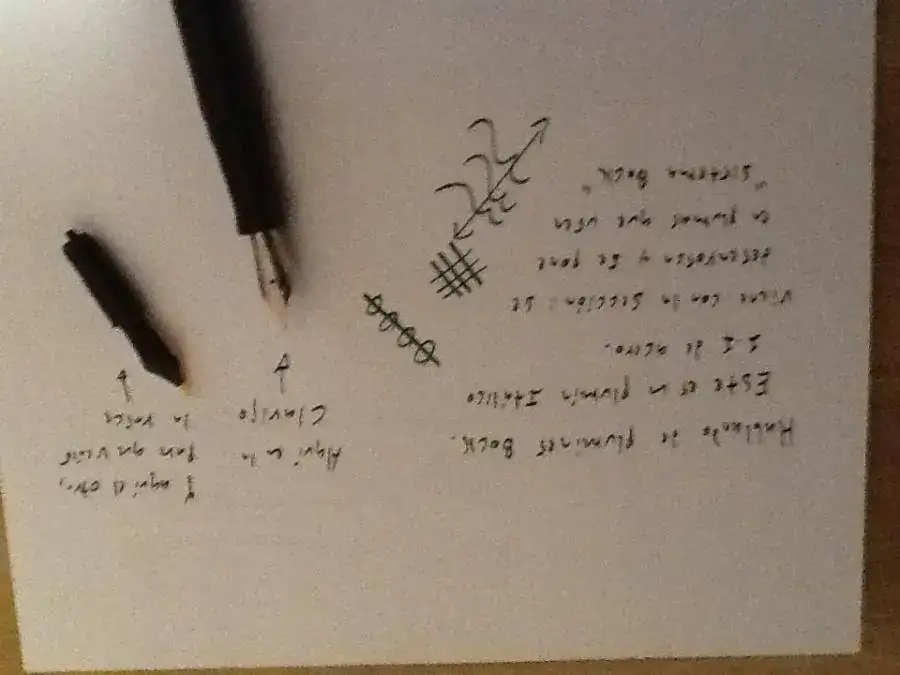 Hablando de plumines Bock.
Este es un plumín Itálico
1.1 de acero.
Viene con la sección: se
desenrosca y se pone
en plumas que usen
"Sistema Bock"
Aquí en la
Clavijo
Y aquí el otro,
para que veáis
la rosca